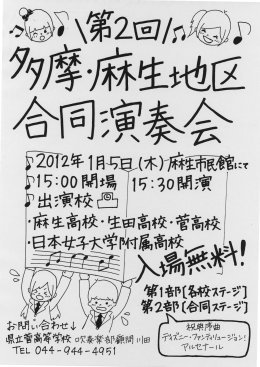 第2回
多摩・麻生地区
合同演奏会
♪2012年1月5日(木)麻生市民館にて
♪15:00開場 15:30開演
♪出演校
・麻生高校・生田高校・菅高校
・日本女子大学附属高校
入場無料!
第1部[各校ステージ]
第2部[合同ステージ]
お問い合わせ↓
県立菅高等学校 吹奏楽部顧問 川田
TEL 044-944-4951
祝典序曲
ディズニー・ファンティリュージョン!
アルセナール